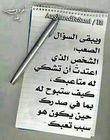 ويبقى السؤال
الصعب،
الشخص الذي
اعتدت أن تشكي
له متاعبك،
كيف ستبوح له
بما في صدرك
حين يكون هو
سبب تعبك